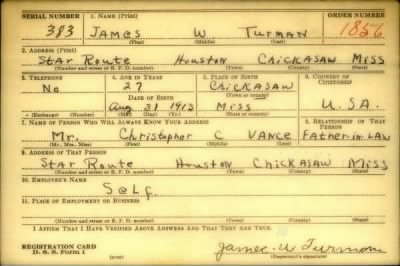 SERIAL NUMBER 1. NAME (Print) ORDER NUMBER
383 JAMES W. TURMAN 1856
(First) (Middle) (Last)
2. ADDRESS (Print)
Star Route Houston Chickasaw Miss
(Number and street or R. F. D. number) (Town) (County) (State)
3. TELEPHONE 4. AGE IN YEARS 5. PLACE OF BIRTH 6. COUNTRY OF CITIZENSHIP
No 27 Chickasaw
DATE OF BIRTH (Town or county)
Aug 31 1913 Miss U.S.A.
(Exchange) (Number) (Mo.) (Day) (Yr.) (State or country)
7. NAME OF PERSON WHO WILL ALWAYS KNOW YOUR ADDRESS 8. RELATIONSHIP OF THAT PERSON
Mr. Christopher C VANCE Father in LAW
(Mr., Mrs., Miss) (First) (Middle) (Last)
9. ADDRESS OF THAT PERSON
Star Route Houston Chickasaw Miss
(Number and street or R. F. D. number) (Town) (County) (State)
10. EMPLOYER'S NAME
Self
11. PLACE OF EMPLOYMENT OR BUSINESS
(Number and street or R. F. D. number) (Town) (County) (State)
I AFFIRM THAT I HAVE VERIFIED ABOVE ANSWERS AND THAT THEY ARE TRUE.
REGISTRATION CARD James W Turman
D. S. S. Form 1 (over) (Registrant's signature)